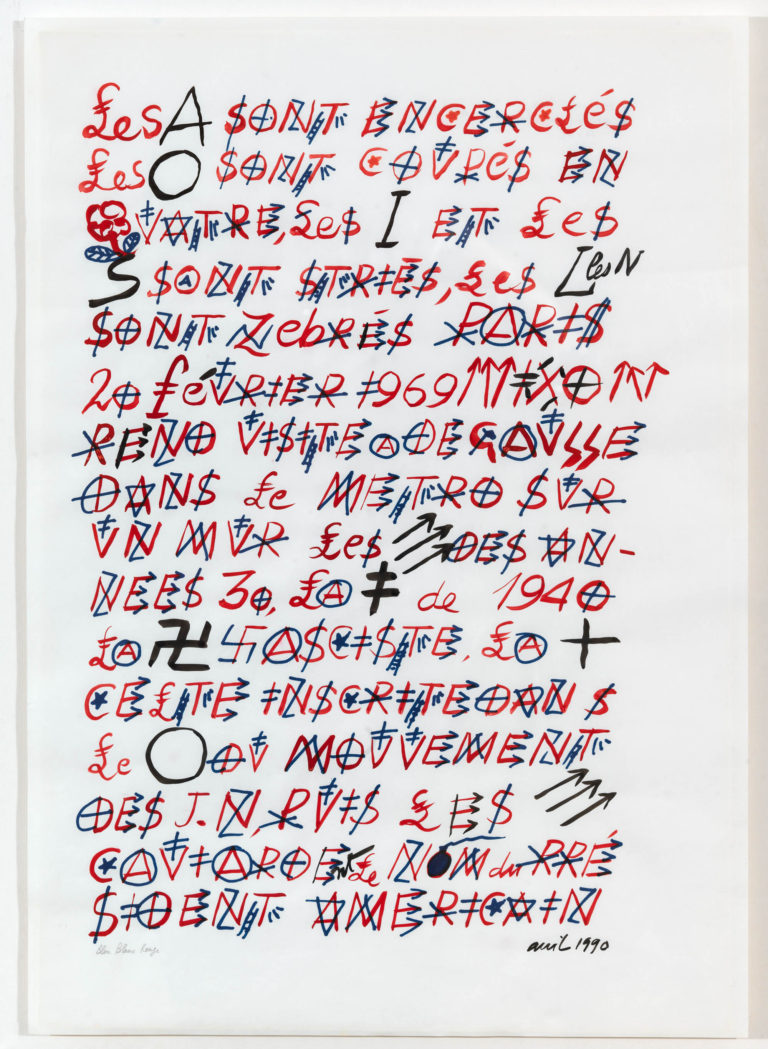 Les A SONT ENCERCLÉS
Les O SONT COUPÉS EN
QUATRE, Les I ET Les
S SONT STRIÉS, Les L les N
SONT ZebRÉS PARIS
20 féVRIER 1969 NIXON
REND VISITE A DE GAULLE
DANS Le METRO SUR
UN MUR Les ↗↗↗ DES AN-
NEES 30, LA ‡ de 1940
LA 卐 FASCISTE, LA +
CELTE INSCRITE DANS
Le O DU MOUVEMENT
DES J.N, PUIS LES ↗↗↗
CAVIARDENT Le NOM du PRÉ
SIDENT AMERICAIN
Bleu Blanc Rouge
avril 1990